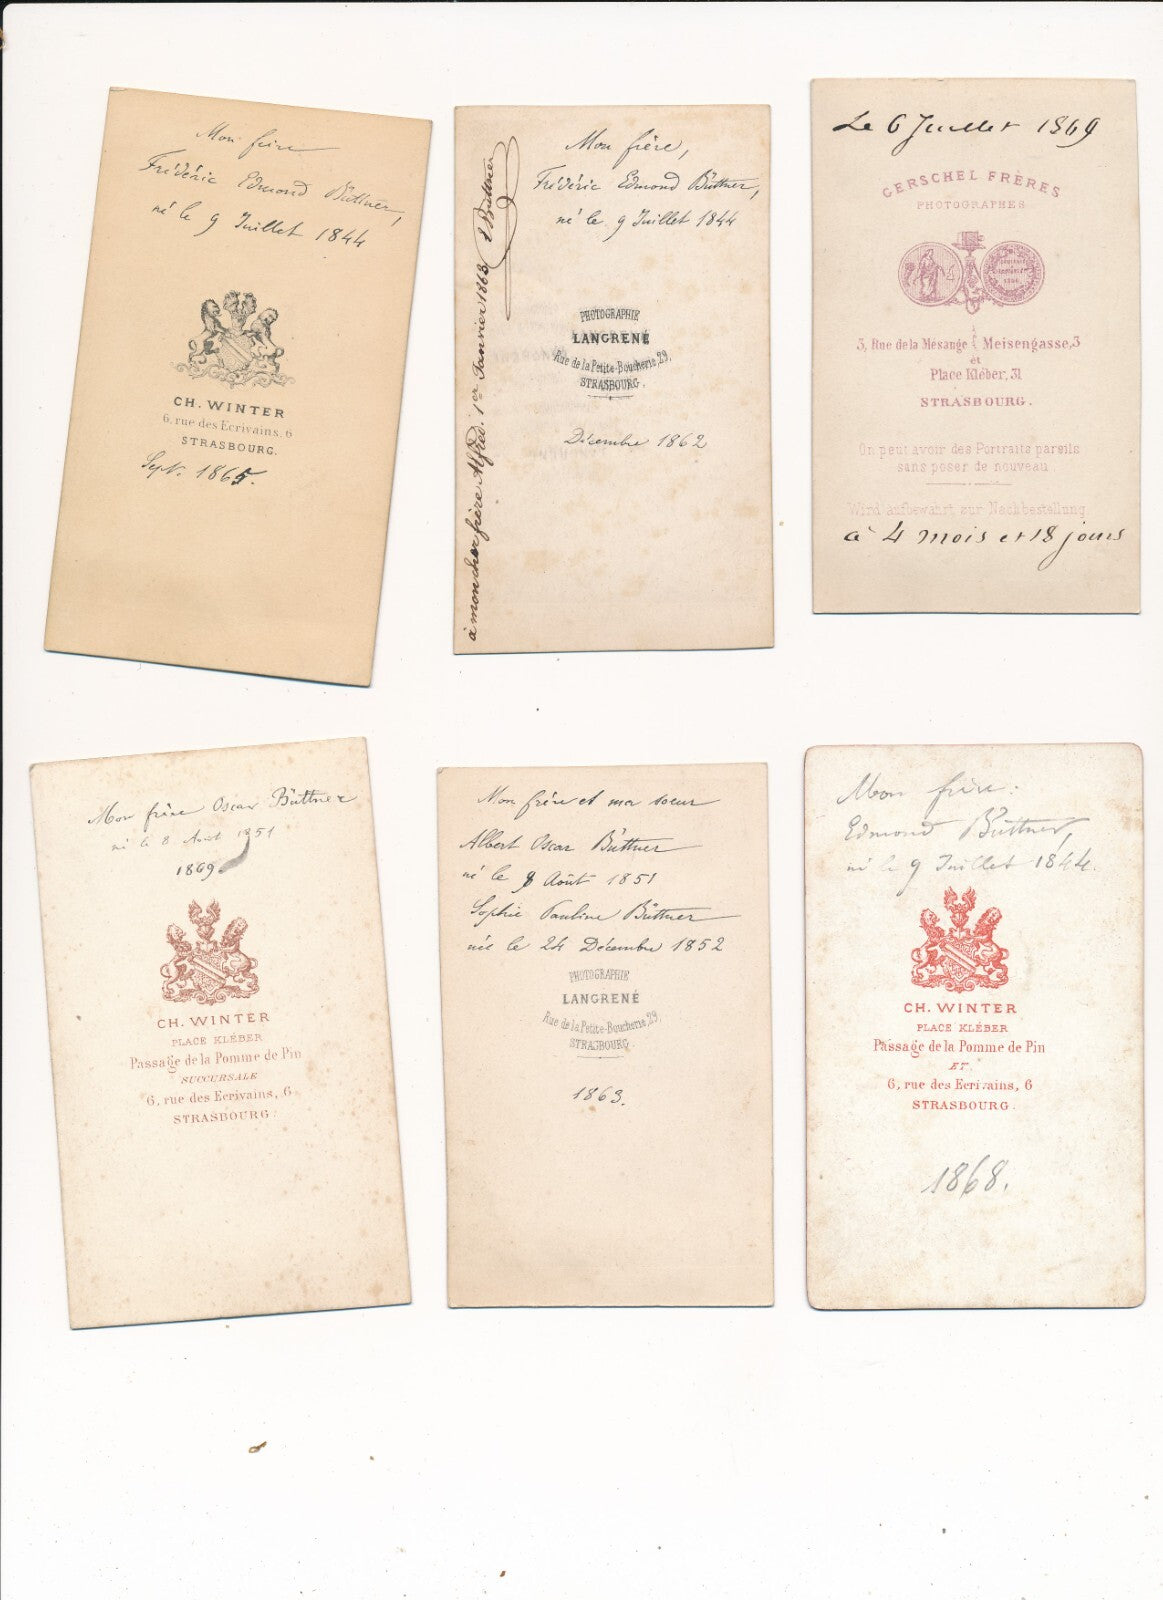 Mon frère
Frédéric Edmond Büttner,
né le 9 Juillet 1844
CH. WINTER
6, rue des Ecrivains, 6
STRASBOURG.
Sept. 1865.
Mon frère,
Frédéric Edmond Büttner,
né le 9 Juillet 1844
PHOTOGRAPHIE
LANGRENÉ
Rue de la Petite-Boucherie, 29,
STRASBOURG.
Décembre 1862
à mon cher frère Alfred. 1er Janvier 1863 E Büttner
Le 6 Juillet 1869
GERSCHEL FRÈRES
PHOTOGRAPHES
3, Rue de la Mésange Meisengasse, 3
et
Place Kléber, 31
STRASBOURG.
On peut avoir des Portraits pareils
sans poser de nouveau
Wird aufbewahrt zur Nachbestellung
à 4 mois et 18 jours
Mon frère Oscar Büttner
né le 8 Août 1851
1869
CH. WINTER
PLACE KLÉBER
Passage de la Pomme de Pin
SUCCURSALE
6, rue des Ecrivains, 6
STRASBOURG.
Mon frère et ma soeur
Albert Oscar Büttner
né le 8 Août 1851
Sophie Pauline Büttner
née le 24 Décembre 1852
PHOTOGRAPHIE
LANGRENÉ
Rue de la Petite-Boucherie, 29,
STRASBOURG.
1863.
Mon frère:
Edmond Büttner,
né le 9 Juillet 1844.
CH. WINTER
PLACE KLÉBER
Passage de la Pomme de Pin
ET
6, rue des Ecrivains, 6
STRASBOURG.
1868.